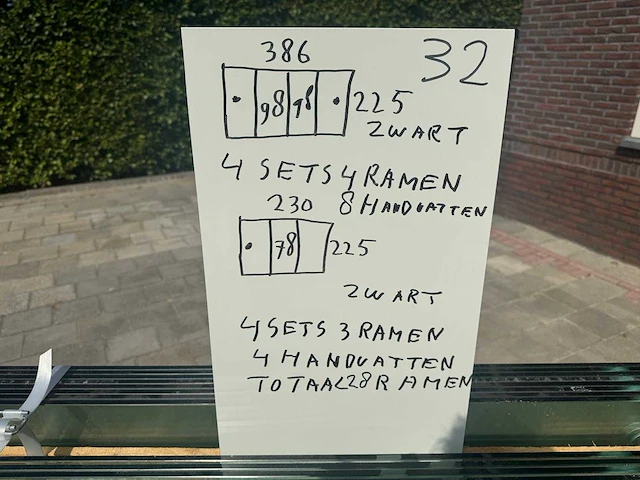 32
386
98 98 225
ZWART
4 SETS 4 RAMEN
8 HANDVATTEN
230
78 225
ZWART
4 SETS 3 RAMEN
4 HANDVATTEN
TOTAAL 28 RAMEN